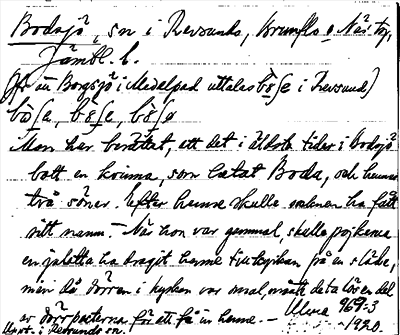 Bodsjö, sn i Revsunds, Brunflo o Näs tg,
Jämtl. l.
(jfr en Borgsjö i Medelpad uttalas i Revsund)
Man har berättat, att det i äldsta tider i Bodsjö
bott en kvinna, som hetat Boda, och hennes
två söner. Efter henne skulle socknen ha fått
sitt namn. – När hon var gammal, skulle pojkarna
en julotta ha dragit henne till kyrkan på en släde,
men då dörren i kyrkan var smal, måste de ta lös en del
av dörrposterna för att få in henne. – Ulma 969:3
Uppt. i Revsunds sn. 1920.